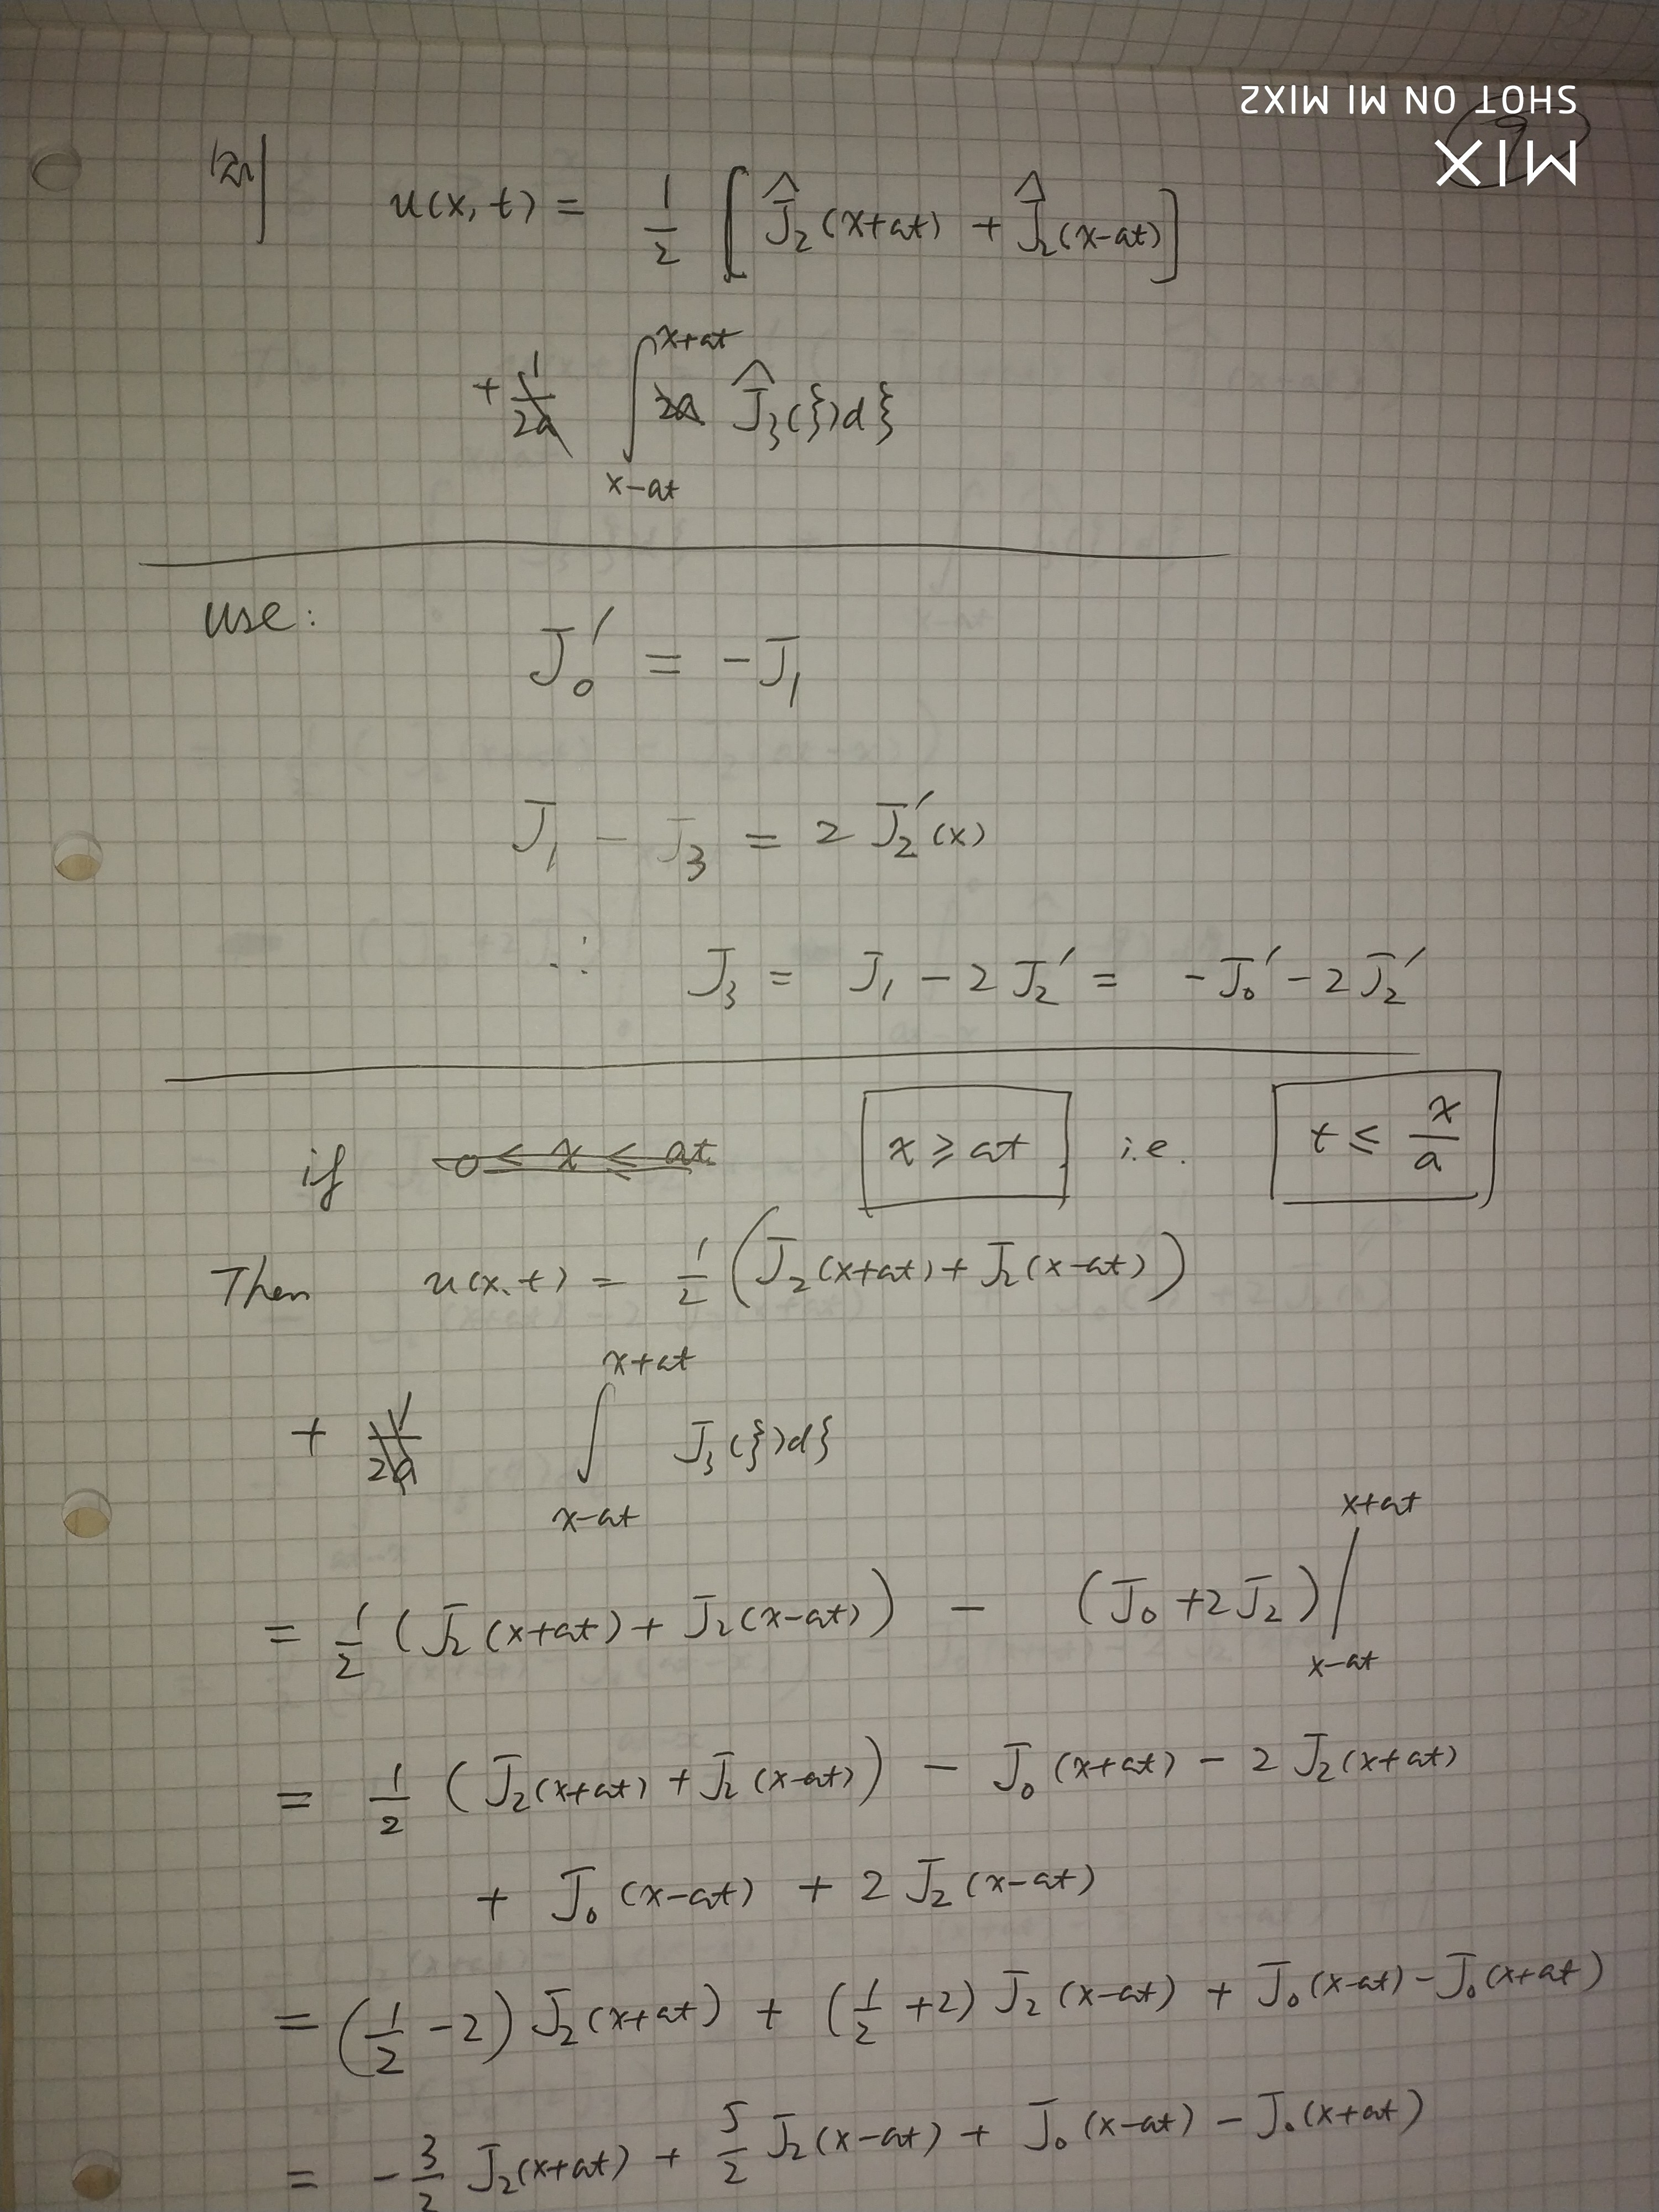 SHOT ON MI MIX2
MIX
u(x, t) = 1/2 [ Ĵ₂(x+at) + Ĵ₂(x-at) ]
+ 1/2a ∫_{x-at}^{x+at} 2a Ĵ₃(ξ)dξ
use:
J₀′ = -J₁
J₁ - J₃ = 2 J₂′(x)
∴ J₃ = J₁ - 2 J₂′ = -J₀′ - 2 J₂′
if 0 ≤ x ≤ at x ≥ at i.e. t ≤ x/a
Then u(x, t) = 1/2 (J₂(x+at) + J₂(x-at))
+ 1/2a ∫_{x-at}^{x+at} J₃(ξ)dξ
= 1/2 (J₂(x+at) + J₂(x-at)) - (J₀ + 2J₂) |_{x-at}^{x+at}
= 1/2 (J₂(x+at) + J₂(x-at)) - J₀(x+at) - 2 J₂(x+at)
+ J₀(x-at) + 2 J₂(x-at)
= (1/2 - 2) J₂(x+at) + (1/2 + 2) J₂(x-at) + J₀(x-at) - J₀(x+at)
= -3/2 J₂(x+at) + 5/2 J₂(x-at) + J₀(x-at) - J₀(x+at)